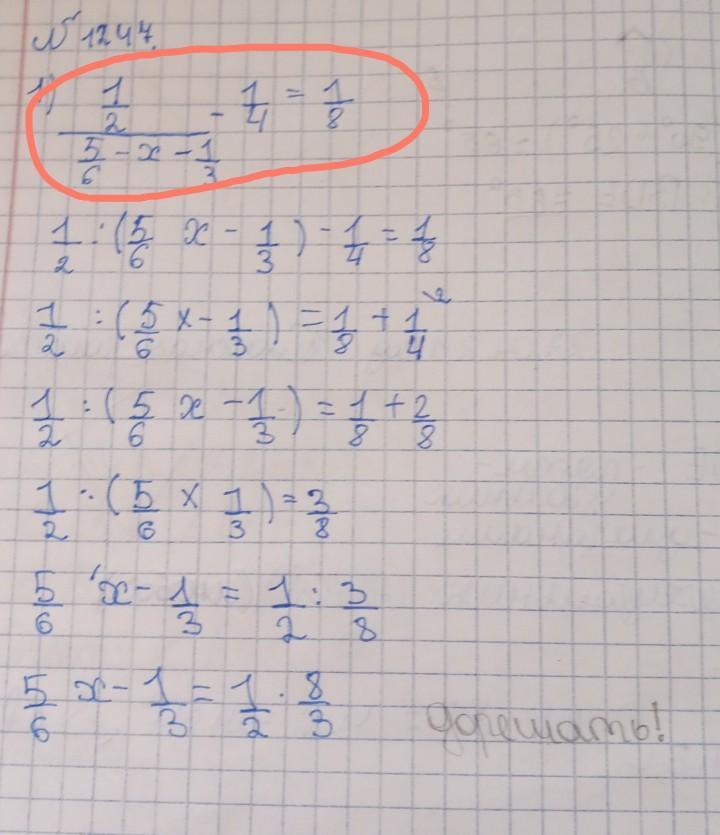 № 1247.
1) (1/2)/(5/6 - x - 1/3) - 1/4 = 1/8
1/2 : (5/6 x - 1/3) - 1/4 = 1/8
1/2 : (5/6 x - 1/3) = 1/8 + 1/4 \2
1/2 : (5/6 x - 1/3) = 1/8 + 2/8
1/2 : (5/6 x 1/3) = 3/8
5/6 x - 1/3 = 1/2 : 3/8
5/6 x - 1/3 = 1/2 · 8/3
дорешать!